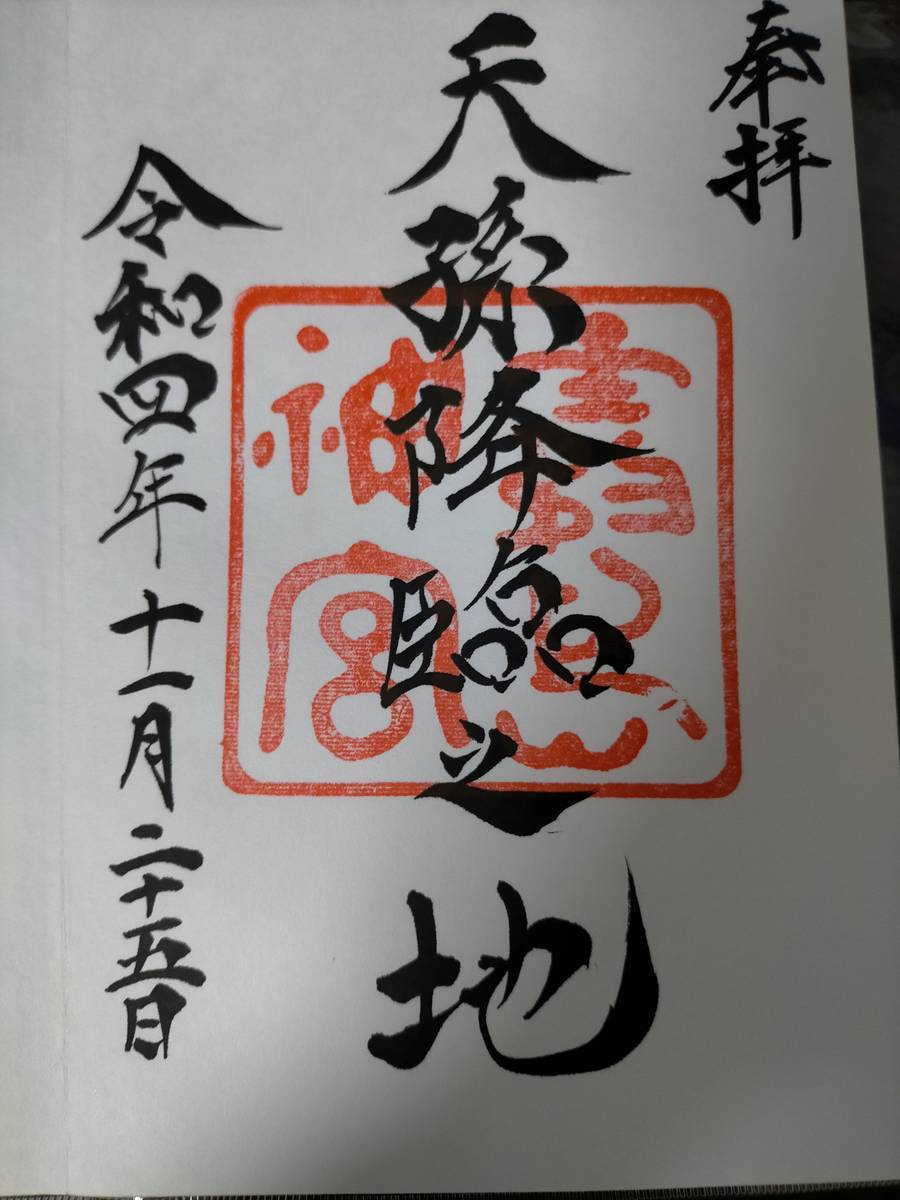 奉拝
天孫降臨之地
霧島
神宮
令和四年十一月二十五日